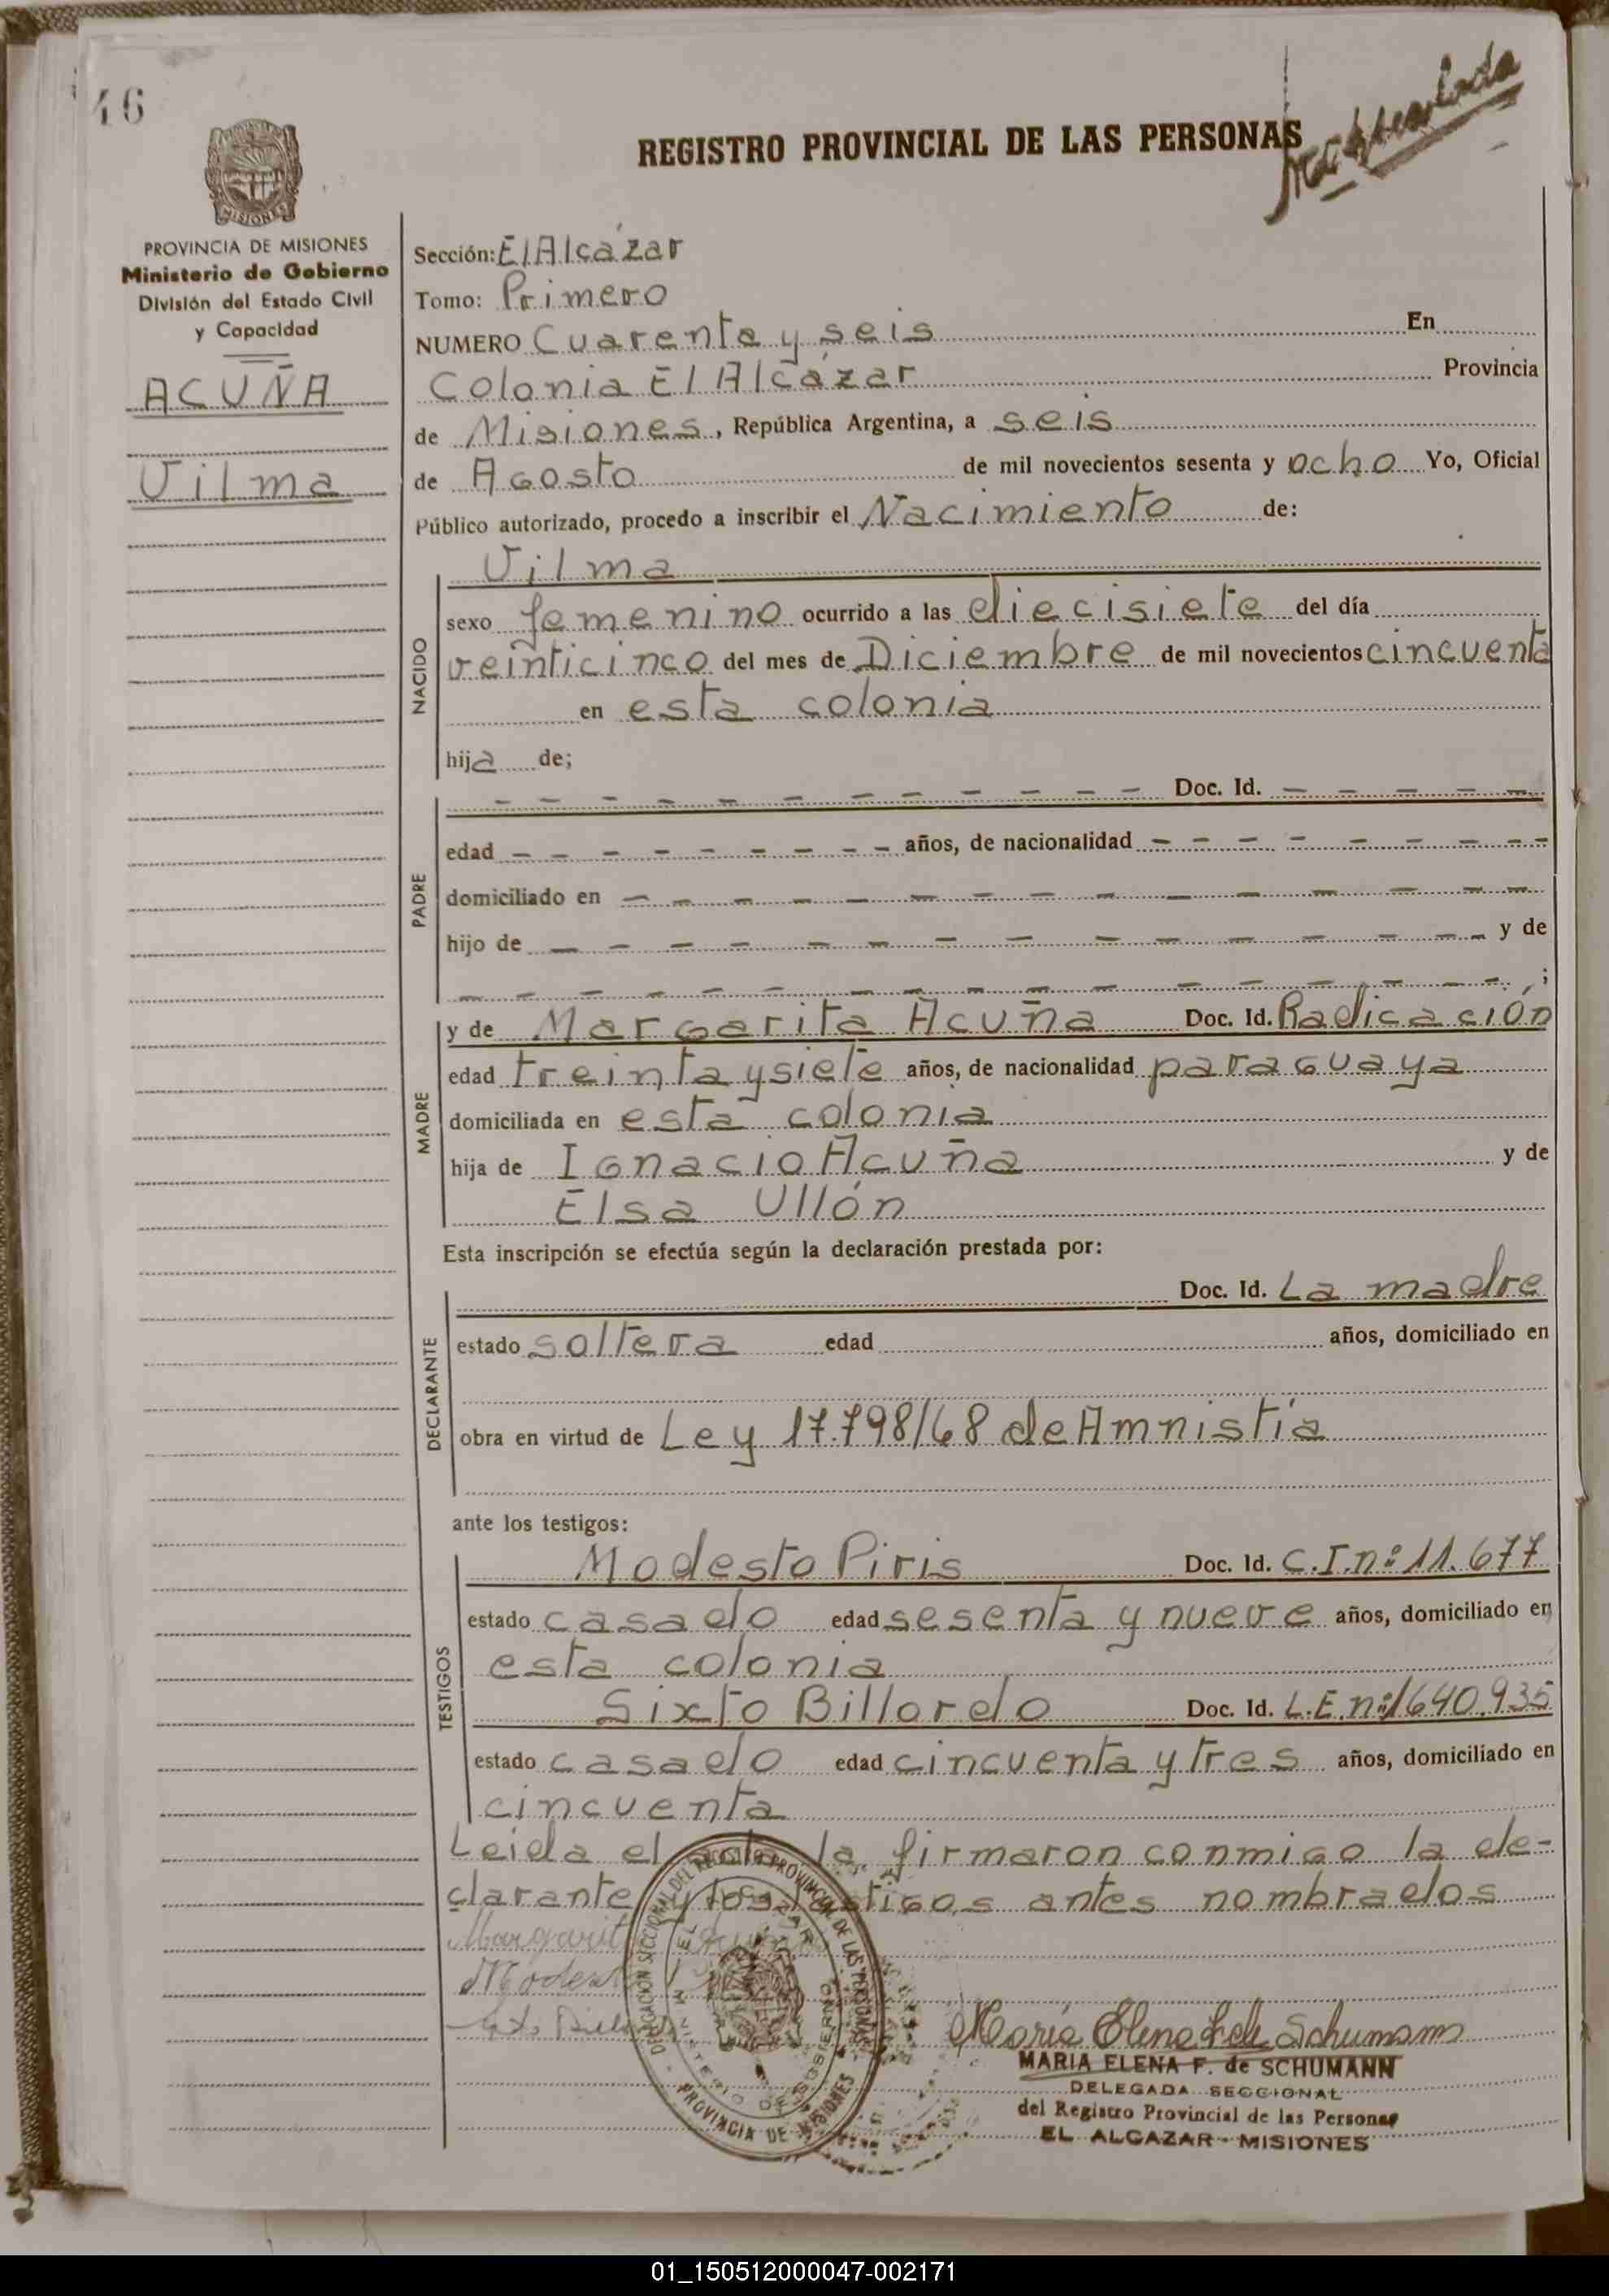 46
REGISTRO PROVINCIAL DE LAS PERSONAS
MISIONES
PROVINCIA DE MISIONES
Ministerio de Gobierno
División del Estado Civil
y Capacidad
ACUÑA
Vilma
Sección: El Alcázar
Tomo: Primero
NUMERO Cuarenta y seis En
Colonia El Alcázar Provincia
de Misiones, República Argentina, a seis
de Agosto de mil novecientos sesenta y ocho Yo, Oficial
Público autorizado, procedo a inscribir el Nacimiento de:
Vilma
NACIDO
sexo femenino ocurrido a las diecisiete del día
veinticinco del mes de Diciembre de mil novecientos cincuenta
en esta colonia
hija de;
PADRE
– – – – – – – – – – – Doc. Id. – – – – –
edad – – – – – – – – años, de nacionalidad – – – – – – – – –
domiciliado en – – – – – – – – – – – – – – –
hijo de – – – – – – – – – – – – – – – y de
– – – – – – – – – – – – – – – – – ;
MADRE
y de Margarita Acuña Doc. Id. Radicación
edad treinta y siete años, de nacionalidad paraguaya
domiciliada en esta colonia
hija de Ignacio Acuña y de
Elsa Ullón
Esta inscripción se efectúa según la declaración prestada por:
DECLARANTE
Doc. Id. La madre
estado soltera edad años, domiciliado en
obra en virtud de Ley 17.798/68 de Amnistía
ante los testigos:
TESTIGOS
Modesto Piris Doc. Id. C.I.nº 11.677
estado casado edad sesenta y nueve años, domiciliado en
esta colonia
Sixto Billordo Doc. Id. L.E.nº 1640.935
estado casado edad cincuenta y tres años, domiciliado en
cincuenta
Leida el acta la firmaron conmigo la de-
clarante y los testigos antes nombrados
Margarita Acuña
DELEGACION SECCIONAL DEL REGISTRO PROVINCIAL DE LAS PERSONAS
EL ALCAZAR
MINISTERIO DE GOBIERNO
PROVINCIA DE MISIONES
Maria Elena F. de Schumann
MARIA ELENA F. de SCHUMANN
DELEGADA SECCIONAL
del Registro Provincial de las Personas
EL ALCAZAR - MISIONES
01_150512000047-002171